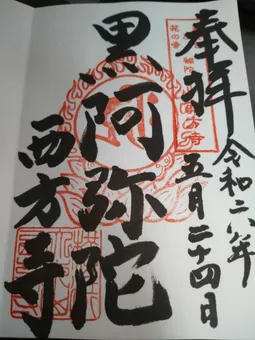 奉拝
令和六年
五月二十四日
黒阿弥陀
西方寺
花の寺